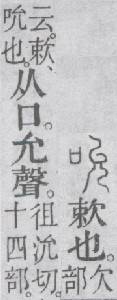 吮 欶也。欠部
云。欶、吮也。从口。允聲。徂沇切。十四部。